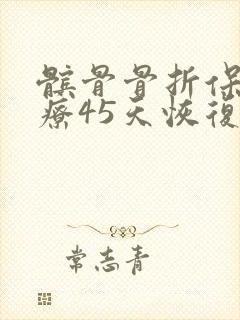 髌骨骨折保
疗45天恢復
常志青